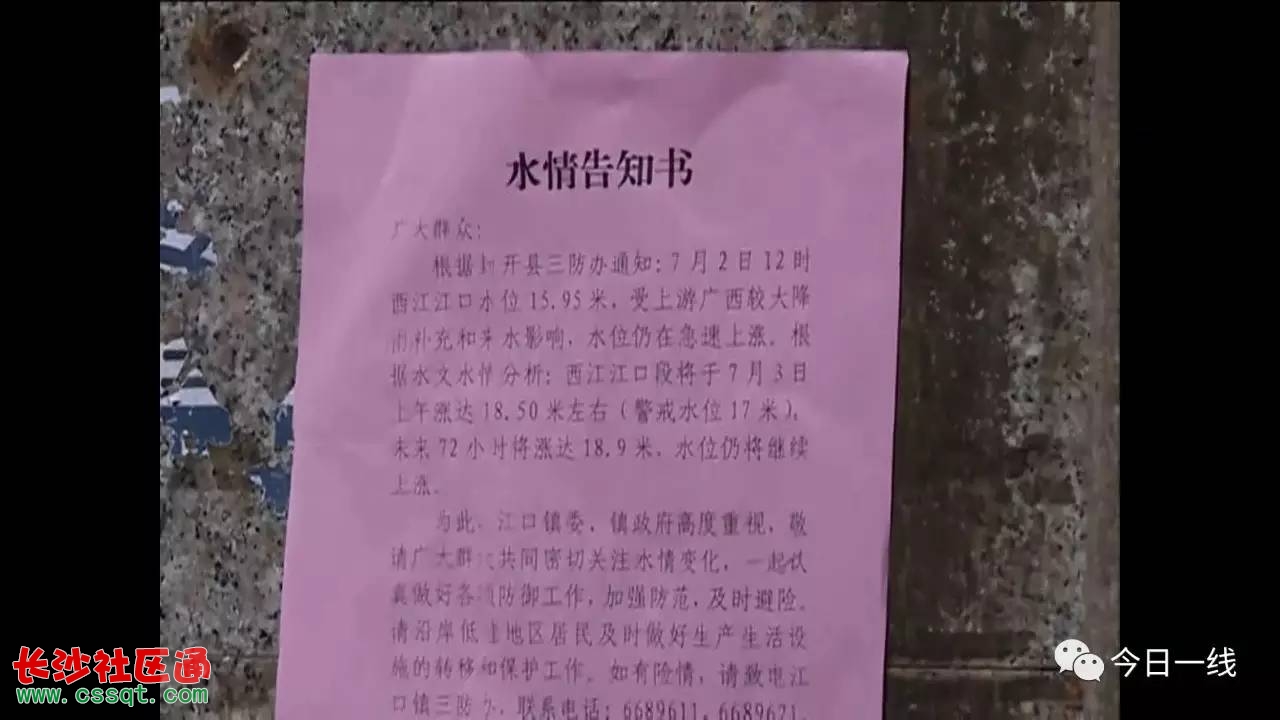 水情告知书
广大群众:
根据封开县三防办通知:7月2日12时
西江江口水位15.95米,受上游广西较大降
雨补充和来水影响,水位仍在急速上涨。根
据水文水情分析:西江江口段将于7月3日
上午涨达18.50米左右(警戒水位17米),
未来72小时将涨达18.9米,水位仍将继续
上涨。
为此,江口镇委、镇政府高度重视,敬
请广大群众共同密切关注水情变化,一起认
真做好各项防御工作,加强防范,及时避险。
请沿岸低洼地区居民及时做好生产生活设
施的转移和保护工作。如有险情,请致电江
口镇三防办,联系电话:6689611,6689621
长沙社区通
www.cssqt.com
今日一线